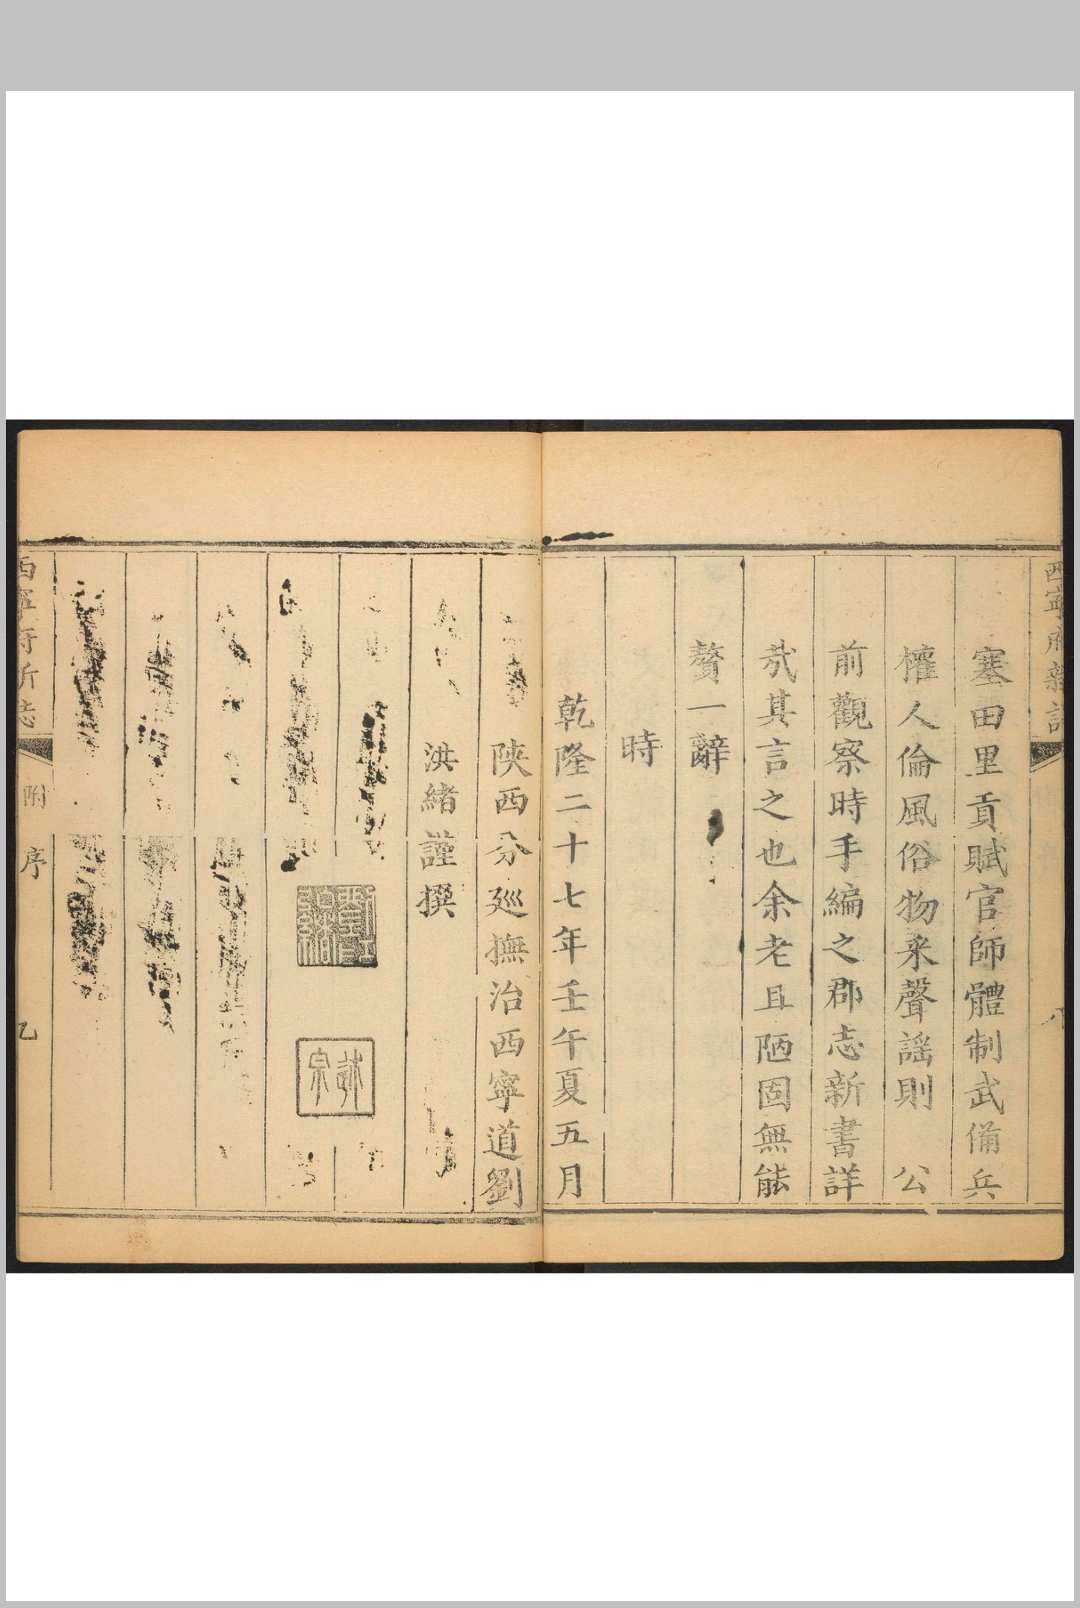 塞田里貢賦官師體制武備兵
權人倫風俗物釆聲謡則 公
前觀察時手編之郡志新書詳
㢤其言之也余老且陋固無能
贅一辭
時
乾隆二十七年壬午夏五月
陝西分廵撫治西寧道劉
洪緒謹撰
西寧府新志
序